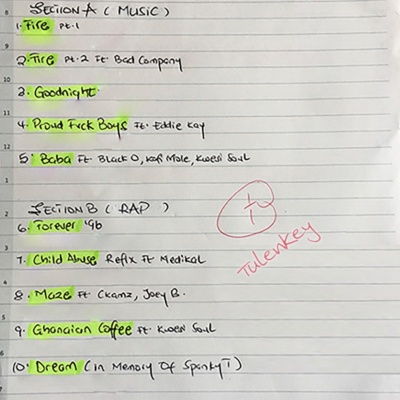 SECTION A (MUSIC)
1. Fire Pt. 1
2. Fire Pt. 2 Ft Bad Company
3. Goodnight
4. Proud Fvck Boys Ft. Eddie Kay
5. Baba Ft. Black O, Kofi Mole, Kwesi Soul
SECTION B (RAP)
6. Forever '96
7. Child Abuse Refix Ft Medikal
8. Maze Ft Ckamz, Joey B.
9. Ghanaian Coffee ft. Kwesi Soul
10. Dream (In Memory Of Spanky T)
1/1
Tulenkey
8
9
10
11
12
1
2
3
4
5
6
7